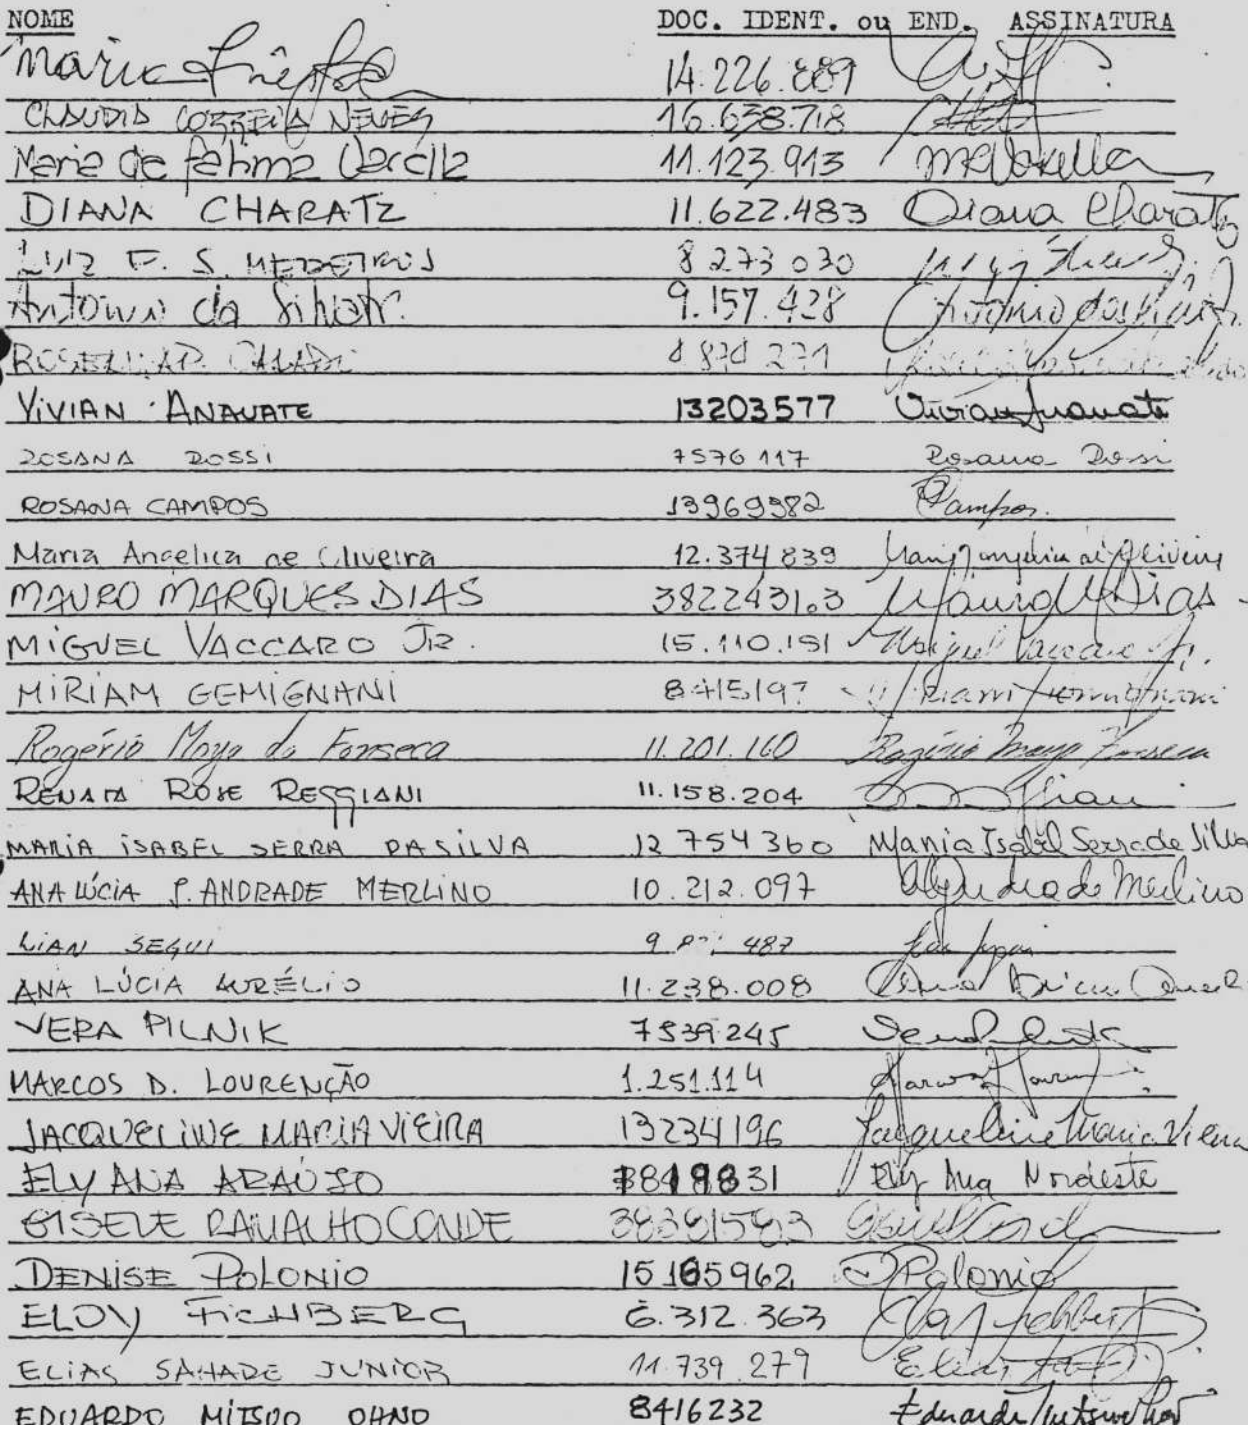 NOME DOC. IDENT. ou END. ASSINATURA
Maria 14.226.889
CLAUDIA CORREIA NEVES 16.638.718
Maria de Fatima Varella 11.123.913 MVarella
DIANA CHARATZ 11.622.483 Diana Charatz
LUIZ F. S. MEDEIROS 8 273 030
Antonio da Silva Jr. 9.157.428
ROSELI 271
VIVIAN ANAUATE 13203577 Vivian Anauate
ROSANA ROSSI 7576 117 Rosana Rossi
ROSANA CAMPOS 13969382 Campos.
Maria Angelica de Oliveira 12.374 839 Maria Angelica de Oliveira
MAURO MARQUES DIAS 38224310.3 Mauro M Dias
MIGUEL VACCARO JR. 15.110.151 Miguel Vaccaro Jr.
MIRIAM GEMIGNANI 8415197 Miriam Gemignani
Rogério Moya da Fonseca 11.201.160 Rogério Moya Fonseca
RENATA ROSE REGGIANI 11.158.204
MARIA ISABEL SERRA DA SILVA 12 754 360 Maria Isabel Serra da Silva
ANA LÚCIA P. ANDRADE MERLINO 10.212.097 Andrade Merlino
LIAN SEGUI 9 487
ANA LÚCIA AURÉLIO 11.238.008
VERA PILNIK 7539245
MARCOS D. LOURENÇÃO 1.251.114
JACQUELINE MARIA VIEIRA 13234196 Jacqueline Maria Vieira
ELY ANA ARAÚJO Ely Ana Nordeste
GISELE RAMALHO CONDE
DENISE POLONIO 15165962 DPolonio
ELOY FICHBERG 6.312.363
ELIAS SAHADE JUNIOR 11.739.279
EDUARDO MITSUO OHNO 8416232 Eduardo Mitsuo Ohno